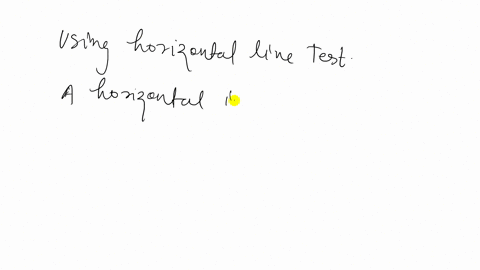 Using horizontal line Test.
A horizontal